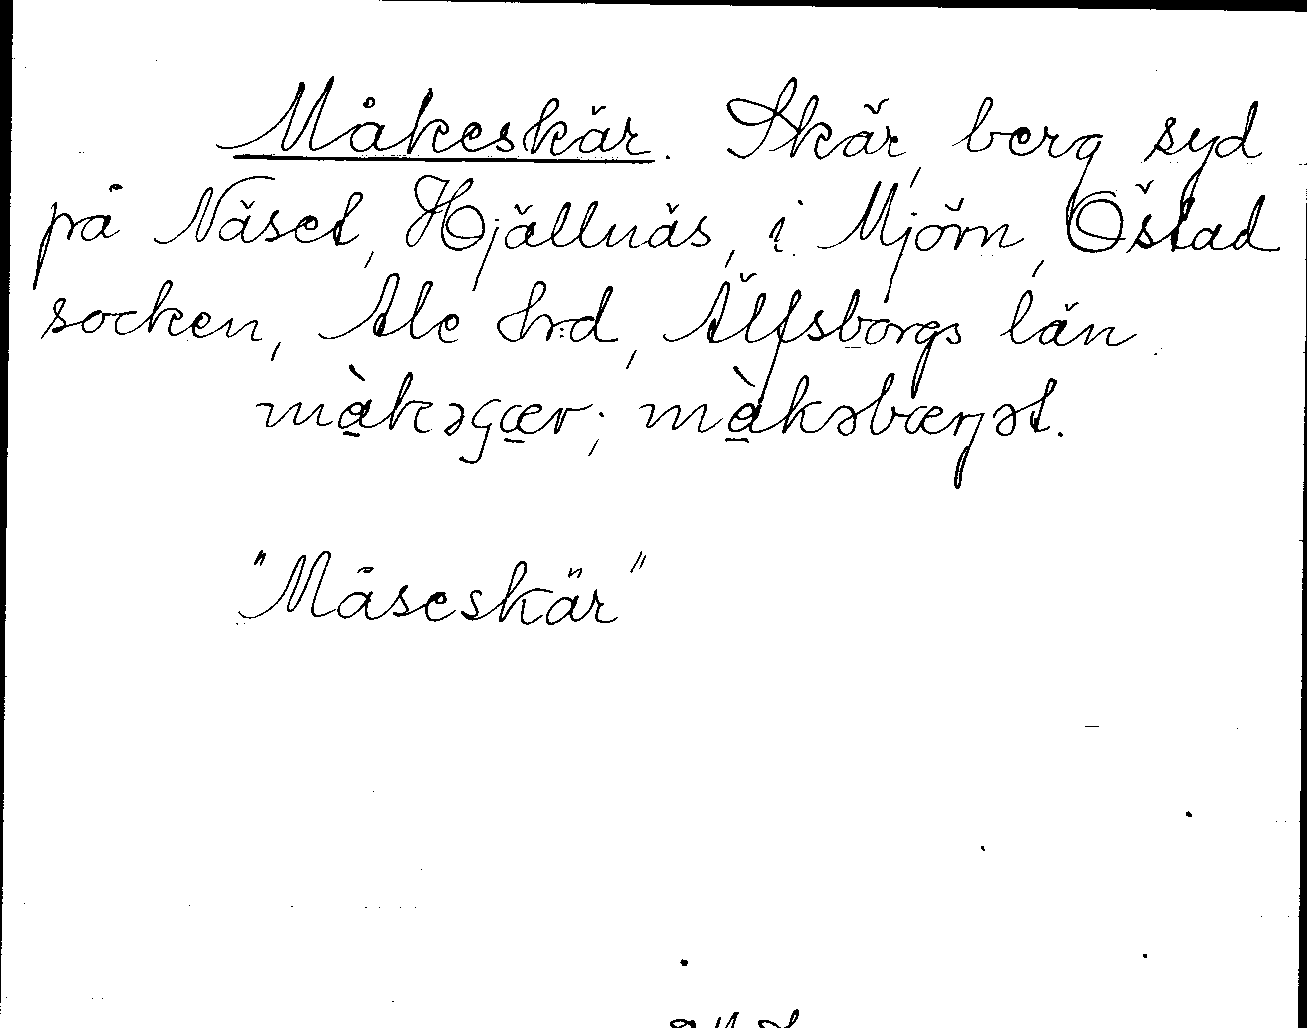 Måkeskär. Skär, berg syd
på Näset, Hjällnäs, i Mjörn, Östad
socken, Ale hrd, Älfsborgs län.
mà̱kəʂæ̱r; mà̱kəbærjət.
"Måseskär"